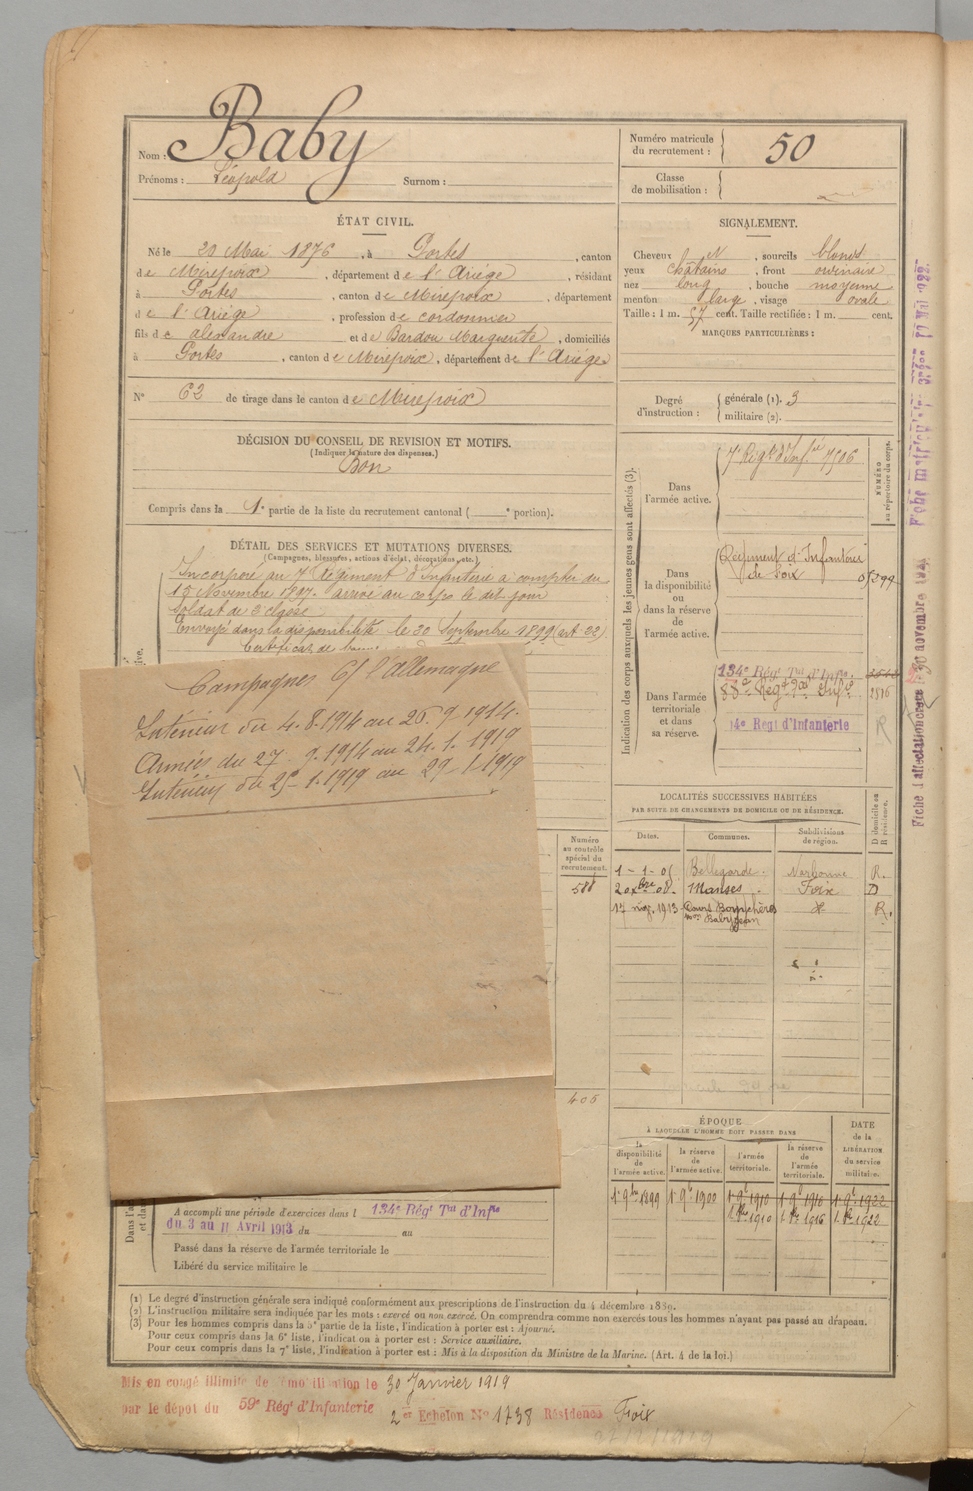 Nom : Baby
Prénoms : Léopold Surnom :
Numéro matricule du recrutement : 50
Classe de mobilisation :
ÉTAT CIVIL.
Né le 29 Mai 1876, à Portes, canton
de Mirepoix, département de l'Ariège, résidant
à Portes, canton de Mirepoix, département
de l'Ariège, profession de cordonnier
fils de alexandre et de Bardou Marguerite, domiciliés
à Portes, canton de Mirepoix, département de l'Ariège
N° 62 de tirage dans le canton de Mirepoix
SIGNALEMENT.
Cheveux N, sourcils blonds
yeux châtains, front ordinaire
nez long, bouche moyenne
menton large, visage ovale
Taille : 1 m. 57 cent. Taille rectifiée : 1 m. cent.
MARQUES PARTICULIÈRES :
Degré d'instruction : générale (1). 3
militaire (2).
DÉCISION DU CONSEIL DE REVISION ET MOTIFS.
(Indiquer la nature des dispenses.)
Bon
Compris dans la 1e partie de la liste du recrutement cantonal ( e portion).
DÉTAIL DES SERVICES ET MUTATIONS DIVERSES.
(Campagnes, blessures, actions d'éclat, décorations, etc.)
Incorporé au 7e Régiment d'Infanterie à compter du
15 Novembre 1897. arrivé au corps le dit jour
Soldat de 2e classe
Envoyé dans la disponibilité le 30 Septembre 1899 (art. 22)
Certificat de bonne
Campagnes C/ l'Allemagne
Intérieur du 4.8.1914 au 26.9.1914.
Armées du 27.9.1914 au 24.1.1919
Intérieur du 25.1.1919 au 29.1.1919
Indication des corps auxquels les jeunes gens sont affectés (3).
NUMÉRO au répertoire du corps.
Dans l'armée active.
7e Régt d'Infie 7506
Dans la disponibilité ou dans la réserve de l'armée active.
Régiment d'Infanterie
de Foix
Dans l'armée territoriale et dans sa réserve.
134e Régt Tal d'Infie
88e Régt Infie 2516
14e Régt d'Infanterie
R
LOCALITÉS SUCCESSIVES HABITÉES
PAR SUITE DE CHANGEMENTS DE DOMICILE OU DE RÉSIDENCE.
Dates. Communes. Subdivisions de région. D domicile ou R résidence.
Bellegarde Narbonne R.
2 oxbre 08. Manses. Foix D
17 1913 R.
Numéro au contrôle spécial du recrutement.
406
ÉPOQUE
À LAQUELLE L'HOMME DOIT PASSER DANS
la disponibilité de l'armée active. la réserve de l'armée active. l'armée territoriale. la réserve de l'armée territoriale.
DATE de la LIBÉRATION du service militaire.
1e 9bre 1899 1e 9bre 1900 1e 9bre 1910 1e 9bre 1916 1e 9bre 1922
1. 8bre 1910 1. 8bre 1916 1. 8bre 1922
A accompli une période d'exercices dans l 134e Régt Tal d'Infie
du 3 au 11 Avril 1913 du au
Passé dans la réserve de l'armée territoriale le
Libéré du service militaire le
(1) Le degré d'instruction générale sera indiqué conformément aux prescriptions de l'instruction du 4 décembre 1889.
(2) L'instruction militaire sera indiquée par les mots : exercé ou non exercé. On comprendra comme non exercés tous les hommes n'ayant pas passé au drapeau.
(3) Pour les hommes compris dans la 5e partie de la liste, l'indication à porter est : Ajourné.
Pour ceux compris dans la 6e liste, l'indication à porter est : Service auxiliaire.
Pour ceux compris dans la 7e liste, l'indication à porter est : Mis à la disposition du Ministre de la Marine. (Art. 4 de la loi.)
Mis en congé illimité de démobilisation le 30 Janvier 1919
par le dépôt du 59e Régt d'Infanterie 2e Echelon No 1738 Résidence Foix